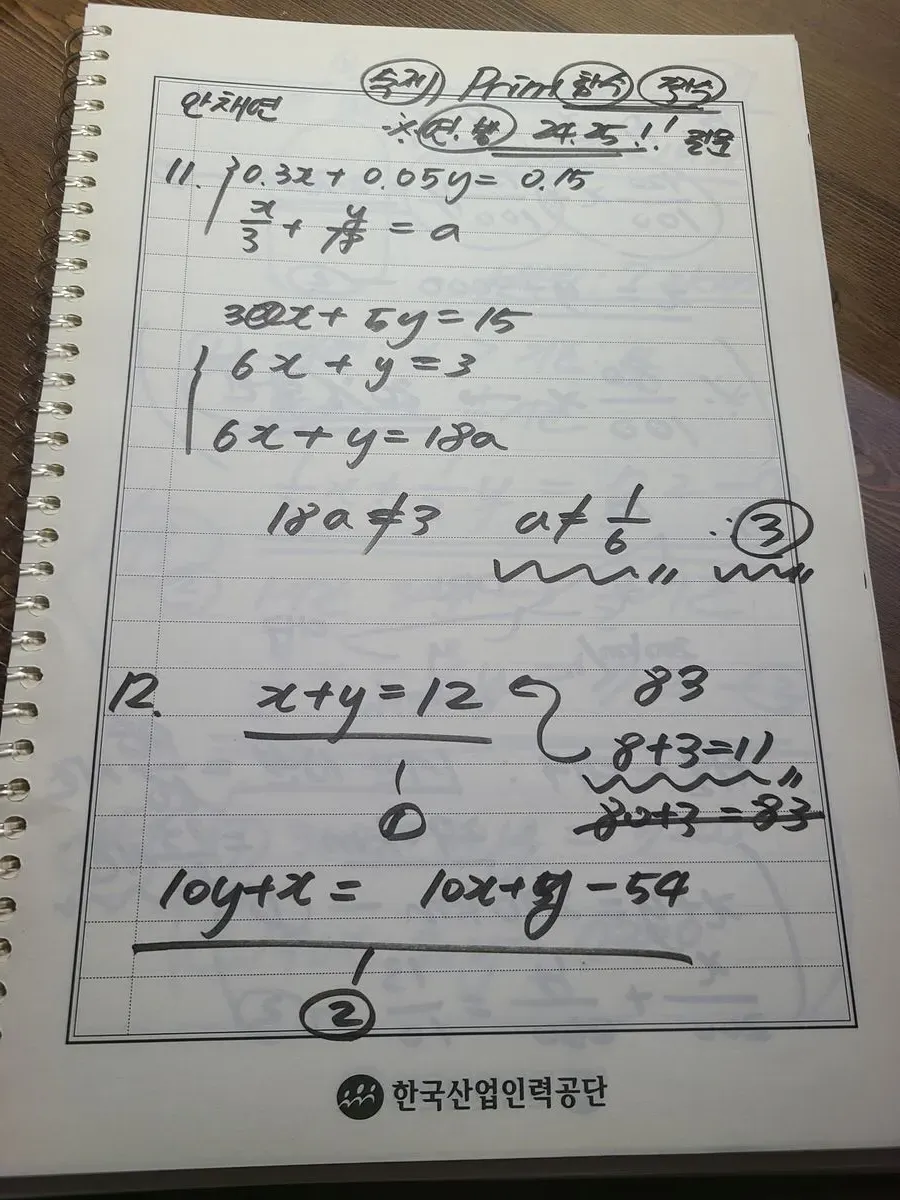 숙제) Prime 함수 짝수
안채연
※ 연.방 24.25!! 질문
11. { 0.3x + 0.05y = 0.15
x/3 + y/18 = a
30x + 5y = 15
{ 6x + y = 3
6x + y = 18a
18a ≠ 3 a ≠ 1/6 ∴ ③
12. x+y = 12 83
8+3=11
① 80+3 = 83
10y+x = 10x+y - 54
②
한국산업인력공단